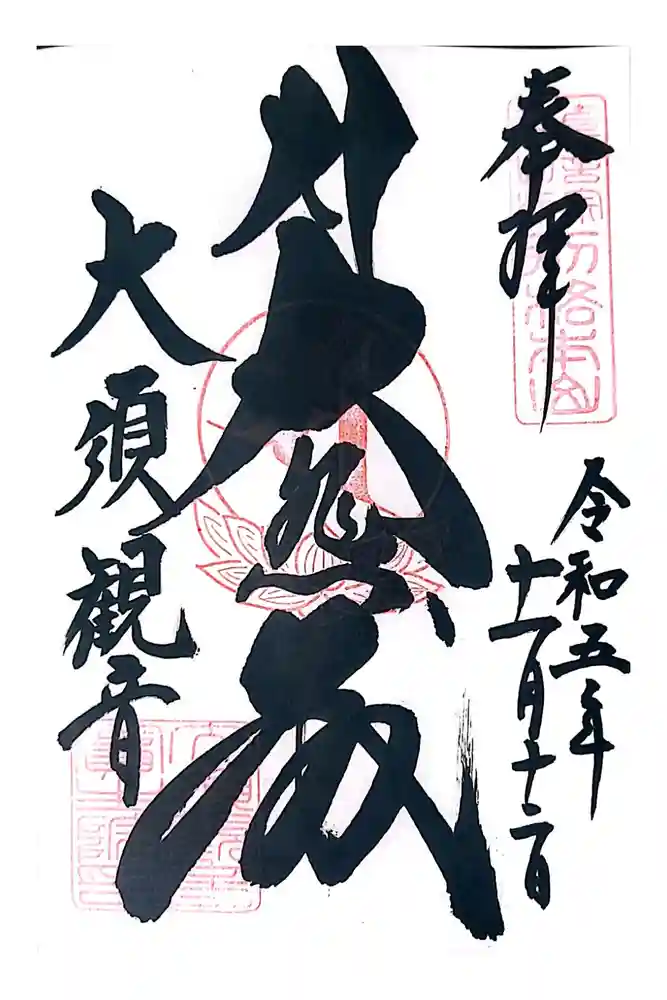 奉拝
令和五年
十一月十二日
大悲殿
大須観音